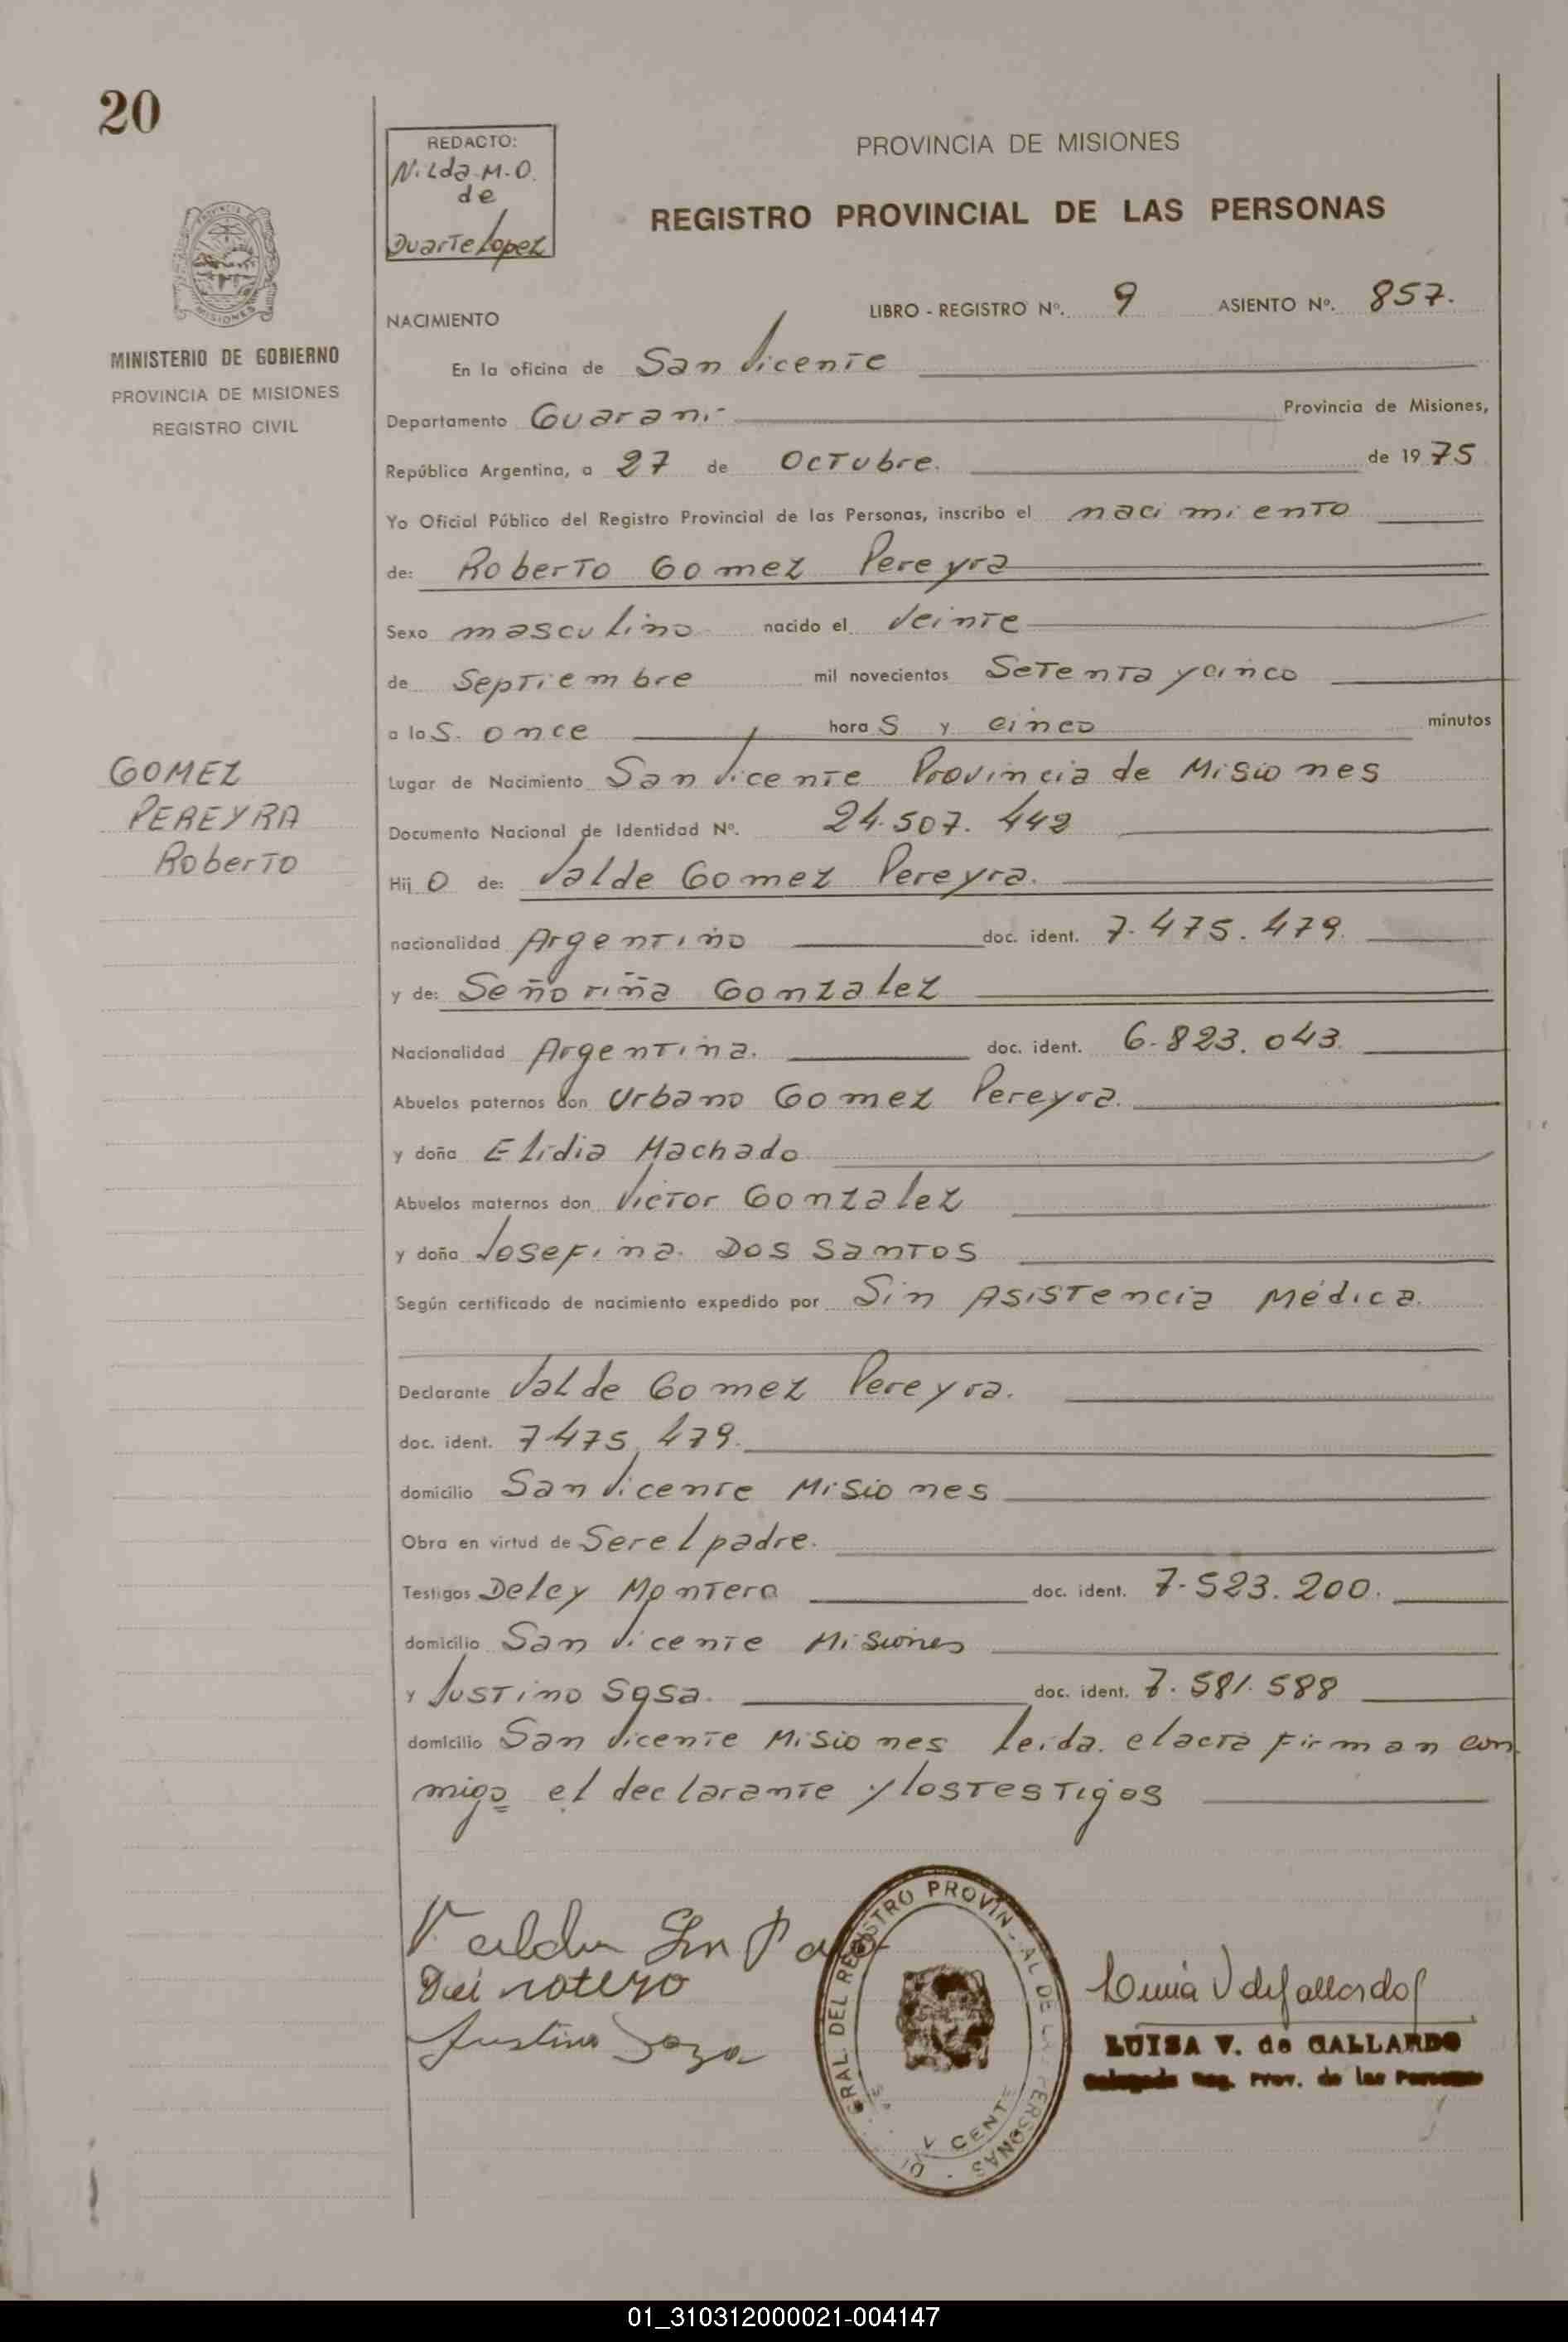 20
REDACTO:
Nilda M.O.
de
Duarte Lopez
PROVINCIA DE MISIONES
REGISTRO PROVINCIAL DE LAS PERSONAS
MINISTERIO DE GOBIERNO
PROVINCIA DE MISIONES
REGISTRO CIVIL
NACIMIENTO
LIBRO - REGISTRO Nº. 9 ASIENTO Nº. 857.
En la oficina de San Vicente
Departamento Guarani Provincia de Misiones,
República Argentina, a 27 de Octubre. de 1975
Yo Oficial Público del Registro Provincial de las Personas, inscribo el nacimiento
de: Roberto Gomez Pereyra
Sexo masculino nacido el Veinte
de Septiembre mil novecientos Setenta y cinco
a las. once horas y cinco minutos
GOMEZ
PEREYRA
Roberto
Lugar de Nacimiento San Vicente Provincia de Misiones
Documento Nacional de Identidad Nº. 24.507.442
Hijo de: Valde Gomez Pereyra.
nacionalidad Argentino doc. ident. 7.475.479.
y de: Señoriña Gonzalez
Nacionalidad Argentina. doc. ident. 6.823.043
Abuelos paternos don Urbano Gomez Pereyra.
y doña Elidia Machado
Abuelos maternos don Victor Gonzalez
y doña Josefina. Dos Santos
Según certificado de nacimiento expedido por Sin Asistencia Médica.
Declarante Valde Gomez Pereyra.
doc. ident. 7.475.479.
domicilio San Vicente Misiones
Obra en virtud de Ser el padre.
Testigos Deley Montero doc. ident. 7.523.200.
domicilio San Vicente Misiones
y Justino Sosa. doc. ident. 7.581.588
domicilio San Vicente Misiones leida. el acta firman con
migo el declarante y los testigos
Justino Soza
GRAL. DEL REGISTRO PROVIN AL DE LA PERSONAS
LUISA V. de GALLARDO
Delegada Reg. Prov. de las Personas
01_310312000021-004147